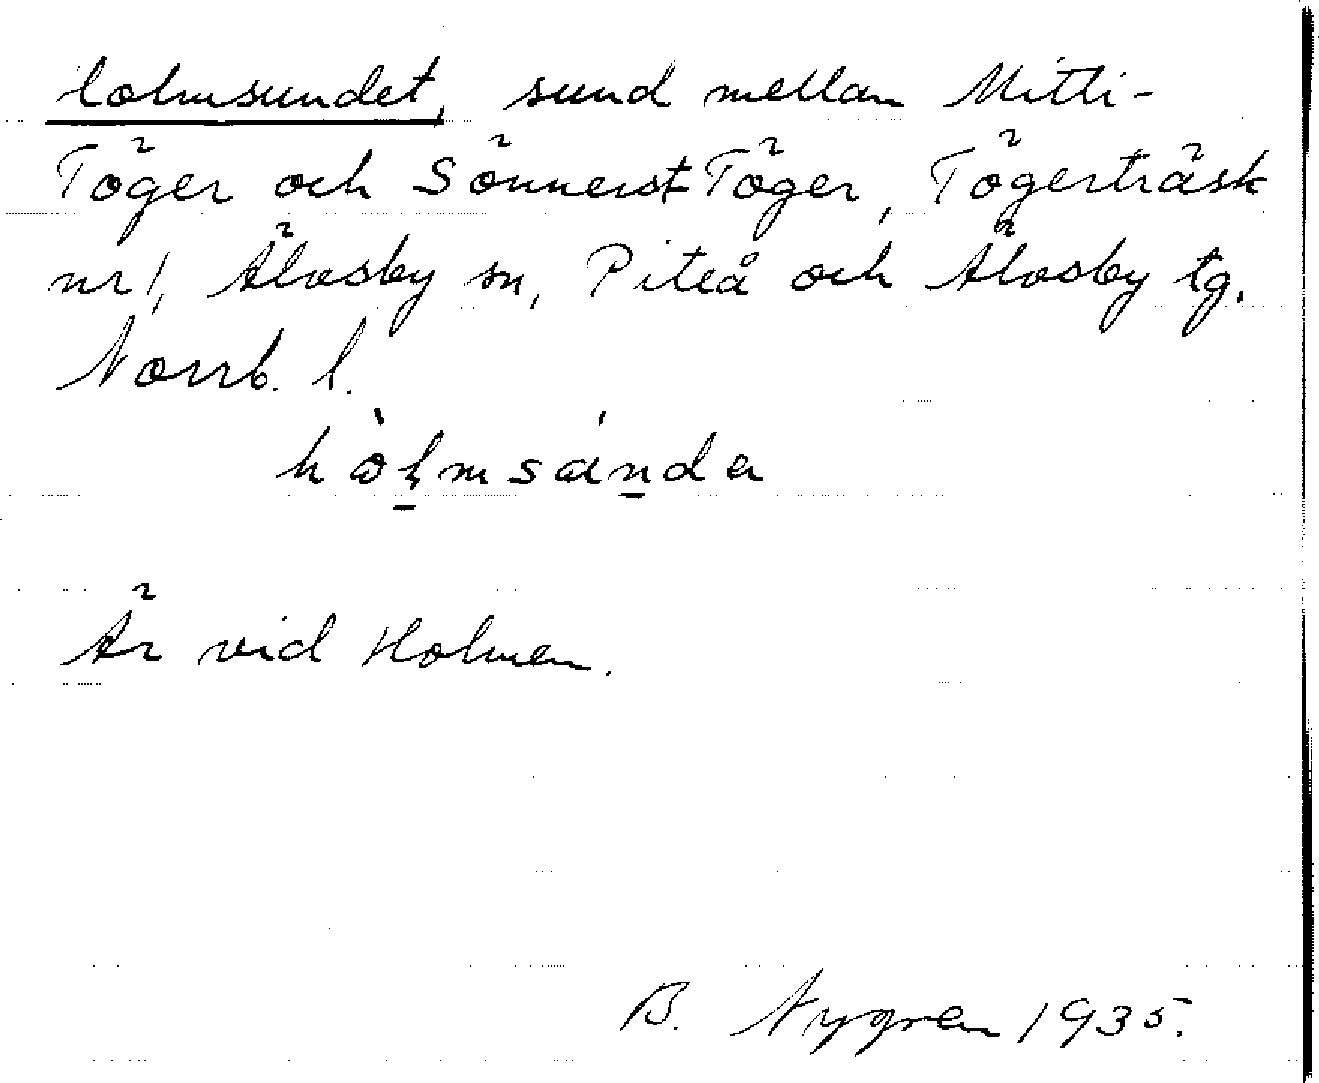 holmsundet, sund mellan Mitti-
Töger och Sönnerst-Töger, Tögerträsk
nr 1, Älvsby sn, Piteå och Älvsby tg.
Norrb. l.
hòl̠msán̠da
Är vid Holmen.
B. Nygren 1935.